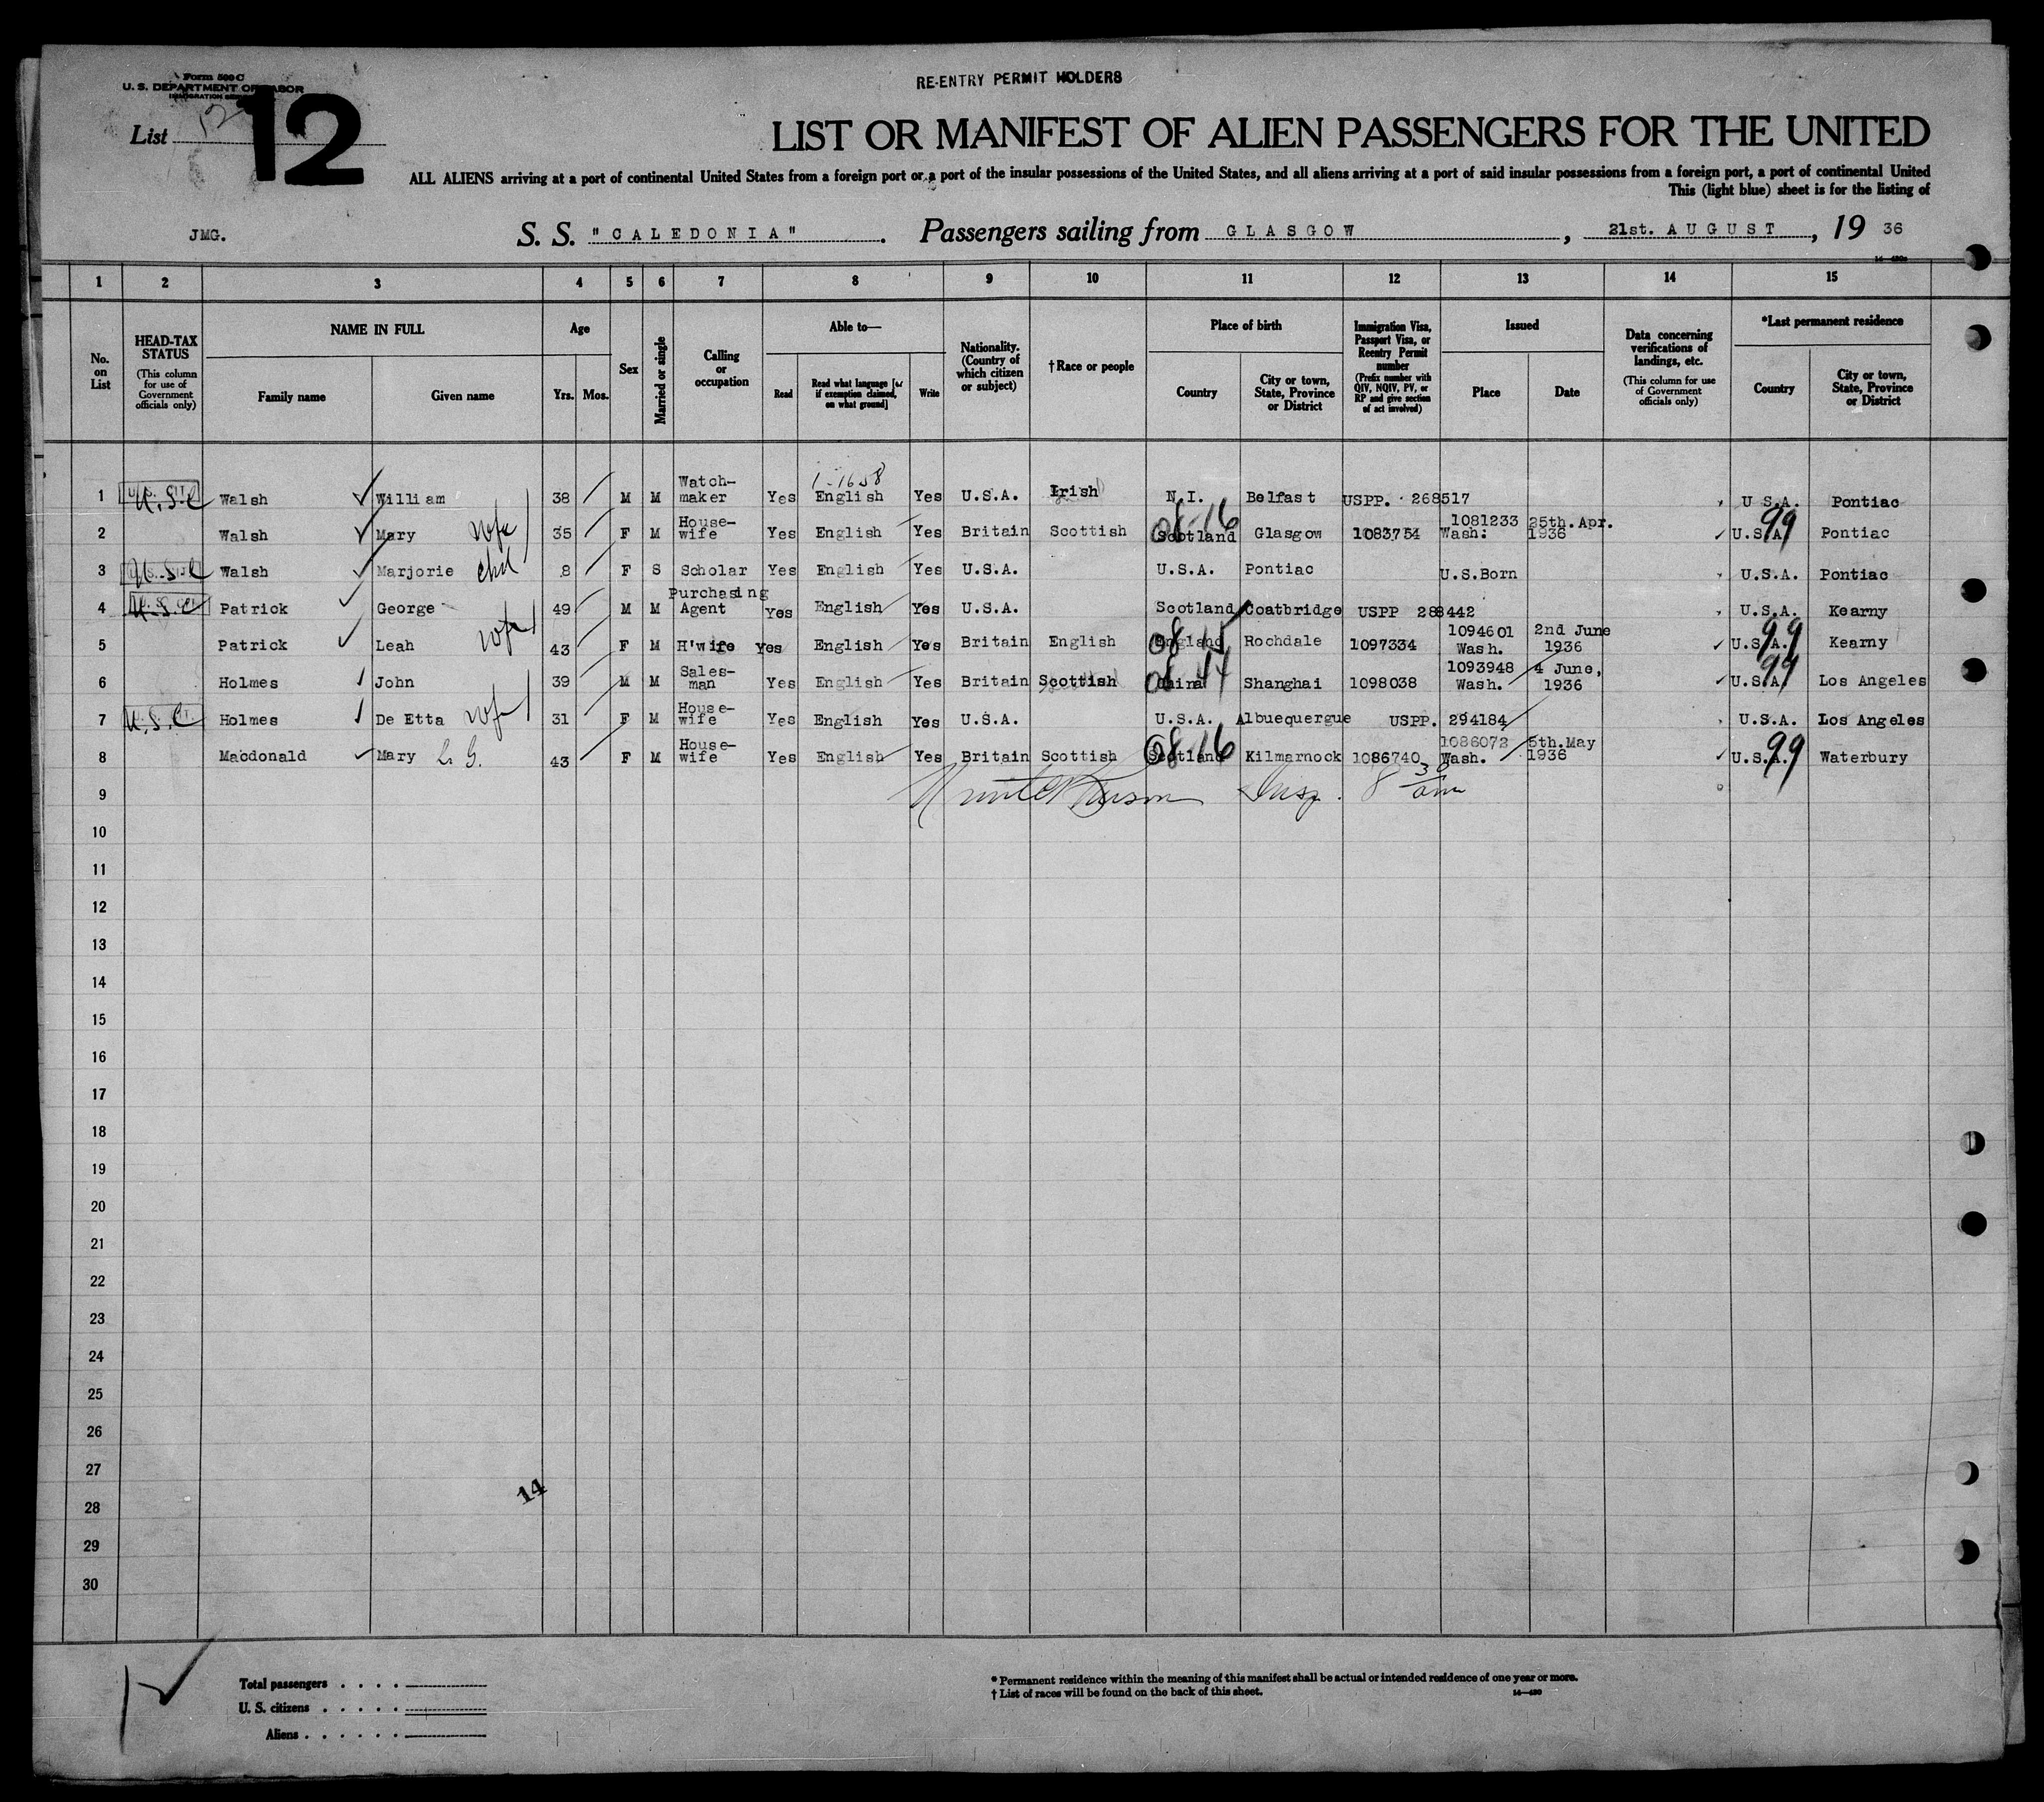 Form 500 C
U. S. DEPARTMENT OF LABOR
RE-ENTRY PERMIT HOLDERS
List 12
12
LIST OR MANIFEST OF ALIEN PASSENGERS FOR THE UNITED
ALL ALIENS arriving at a port of continental United States from a foreign port or a port of the insular possessions of the United States, and all aliens arriving at a port of said insular possessions from a foreign port, a port of continental United
This (light blue) sheet is for the listing of
JMG. S. S. "CALEDONIA". Passengers sailing from GLASGOW, 21st. AUGUST, 19 36
1 2 3 4 5 6 7 8 9 10 11 12 13 14 15
No. on List
HEAD-TAX STATUS
(This column for use of Government officials only)
NAME IN FULL
Family name Given name
Age
Yrs. Mos.
Sex
Married or single
Calling or occupation
Able to—
Read Read what language [or if exemption claimed, on what ground] Write
Nationality. (Country of which citizen or subject)
†Race or people
Place of birth
Country City or town, State, Province or District
Immigration Visa, Passport Visa, or Reentry Permit number
(Prefix number with QIV, NQIV, PV, or RP and give section of act involved)
Issued
Place Date
Data concerning verifications of landings, etc.
(This column for use of Government officials only)
*Last permanent residence
Country City or town, State, Province or District
1-1658
1 U.S.C Walsh William 38 M M Watch-maker Yes English Yes U.S.A. Irish N.I. Belfast USPP. 268517 U S.A. Pontiac
2 Walsh Mary wfe 35 F M House-wife Yes English Yes Britain Scottish Scotland 08-16 Glasgow 1083754 1081233 Wash. 25th.Apr. 1936 U.S.A. 99 Pontiac
3 U.S.C Walsh Marjorie chd 8 F S Scholar Yes English Yes U.S.A. U.S.A. Pontiac U.S.Born U.S.A. Pontiac
4 U.S.C Patrick George 49 M M Purchasing Agent Yes English Yes U.S.A. Scotland Coatbridge USPP 288442 U.S.A. Kearny
5 Patrick Leah wfe 43 F M H'wife Yes English Yes Britain English England 08 15 Rochdale 1097334 1094601 Wash. 2nd June 1936 U.S.A. 99 Kearny
6 Holmes John 39 M M Sales-man Yes English Yes Britain Scottish China 08 44 Shanghai 1098038 1093948 Wash. 4 June, 1936 U.S.A. 99 Los Angeles
7 U.S.C Holmes De Etta wfe 31 F M House-wife Yes English Yes U.S.A. U.S.A. Albuequergue USPP. 294184 U.S.A. Los Angeles
8 Macdonald Mary L. G. 43 F M House-wife Yes English Yes Britain Scottish Scotland 08-16 Kilmarnock 1086740 1086072 Wash. 5th.May 1936 U.S.A. 99 Waterbury
9 Insp. 8 30 am
10
11
12
13
14
15
16
17
18
19
20
21
22
23
24
25
26
27
14
28
29
30
Total passengers
U. S. citizens
Aliens
* Permanent residence within the meaning of this manifest shall be actual or intended residence of one year or more.
† List of races will be found on the back of this sheet.
14—430